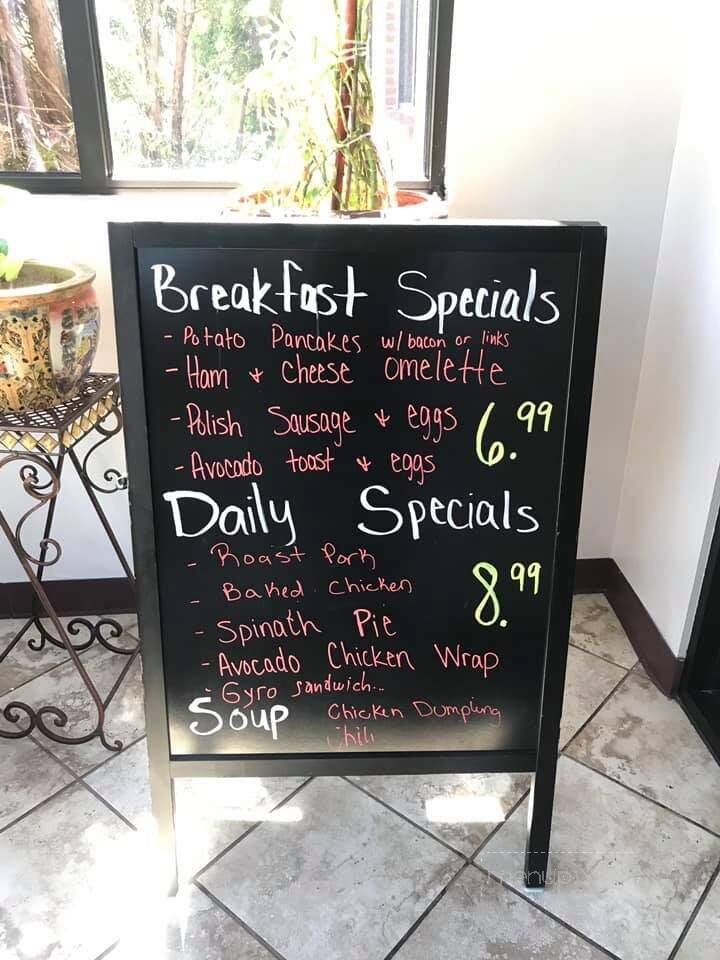 Breakfast Specials
- Potato Pancakes w/ bacon or links
- Ham & Cheese Omelette
- Polish Sausage & eggs
6.99
- Avocado toast & eggs
Daily Specials
- Roast Pork
- Baked Chicken
8.99
- Spinath Pie
- Avocado Chicken Wrap
- Gyro Sandwich...
Soup Chicken Dumpling
Chili